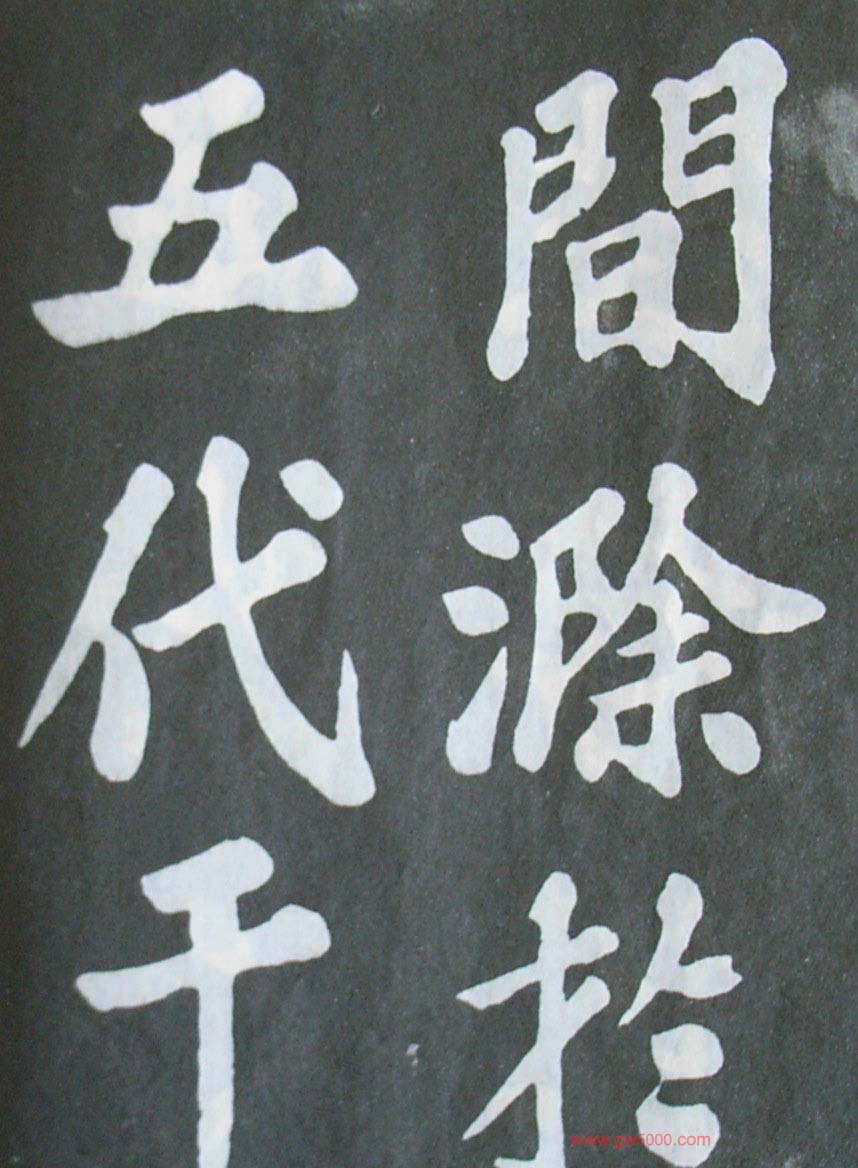 間滁於
五代干
www.gw5000.com